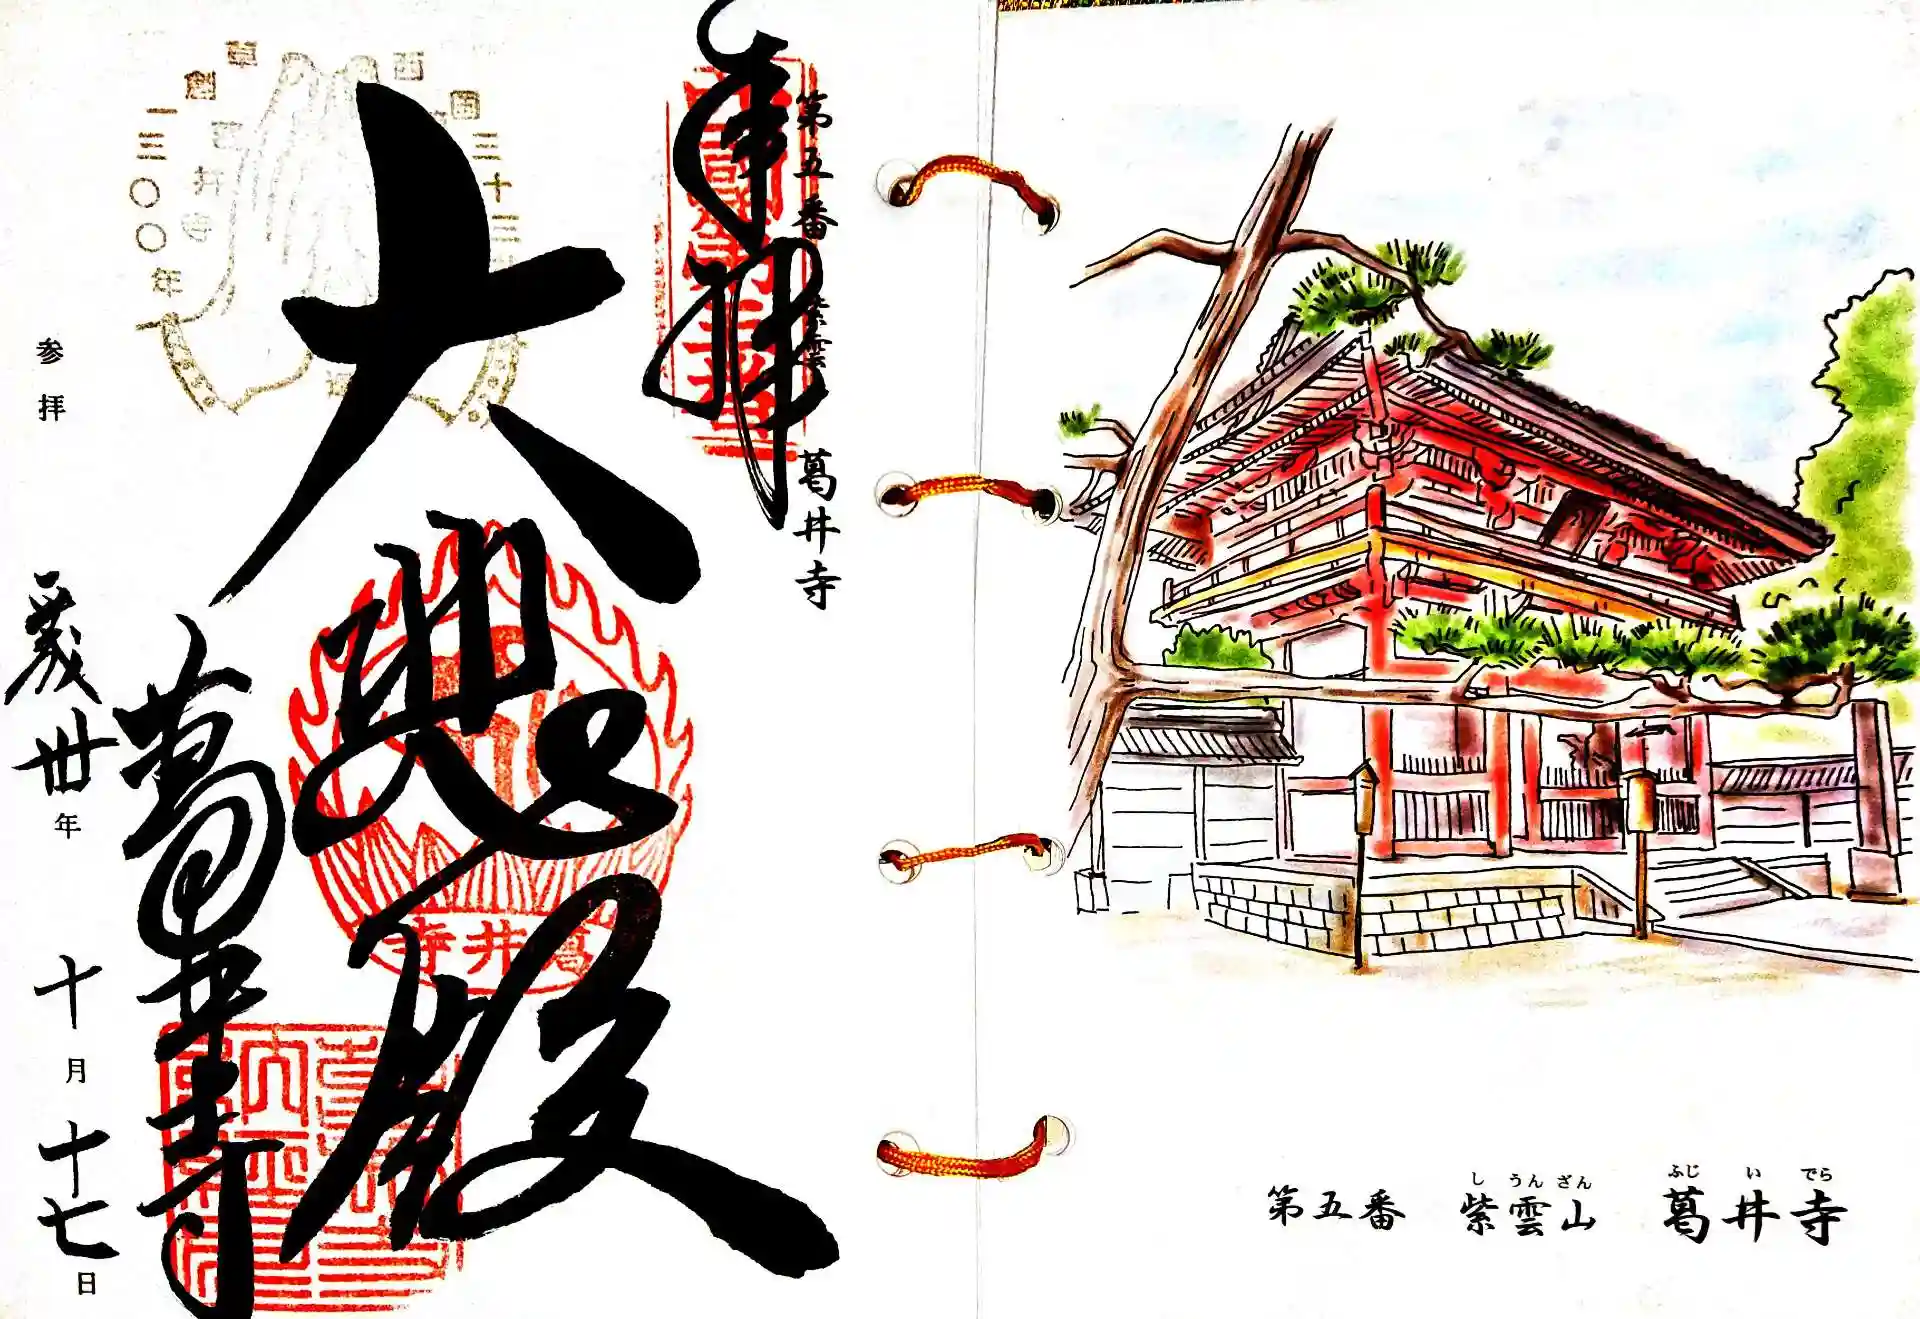 第五番 紫雲 葛井寺
奉拝
西国第五番
西国三十三所草創一三〇〇年
葛井寺
大悲殿
葛井寺
葛井寺
参拝 平成卅年十月十七日
しうんざん ふじいでら
第五番 紫雲山 葛井寺